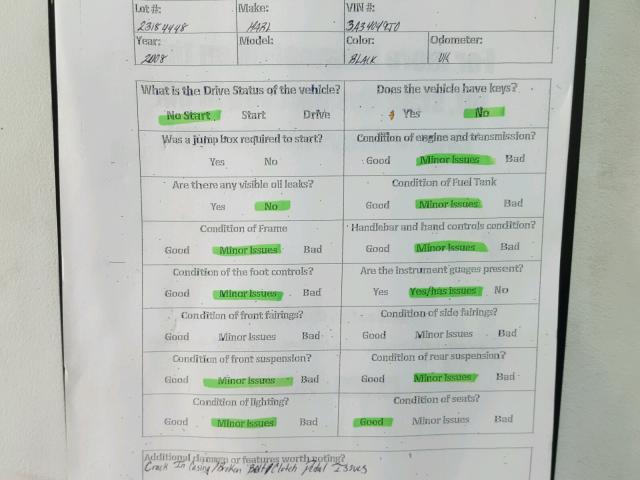 Lot #: Make: VIN #:
23184448 HARL 3A340497O
Year: Model: Color: Odometer:
2008 BLACK UK
What is the Drive Status of the vehicle? Does the vehicle have keys?
No Start Start Drive Yes No
Was a jump box required to start? Condition of engine and transmission?
Yes No Good Minor Issues Bad
Are there any visible oil leaks? Condition of Fuel Tank
Yes No Good Minor Issues Bad
Condition of Frame Handlebar and hand controls condition?
Good Minor Issues Bad Good Minor Issues Bad
Condition of the foot controls? Are the instrument guages present?
Good Minor Issues Bad Yes Yes/has issues No
Condition of front fairings? Condition of side fairings?
Good Minor Issues Bad Good Minor Issues Bad
Condition of front suspension? Condition of rear suspension?
Good Minor Issues Bad Good Minor Issues Bad
Condition of lighting? Condition of seats?
Good Minor Issues Bad Good Minor Issues Bad
Additional damage or features worth noting?
Crack In Casing/Broken Belt/Clutch pedal Issues